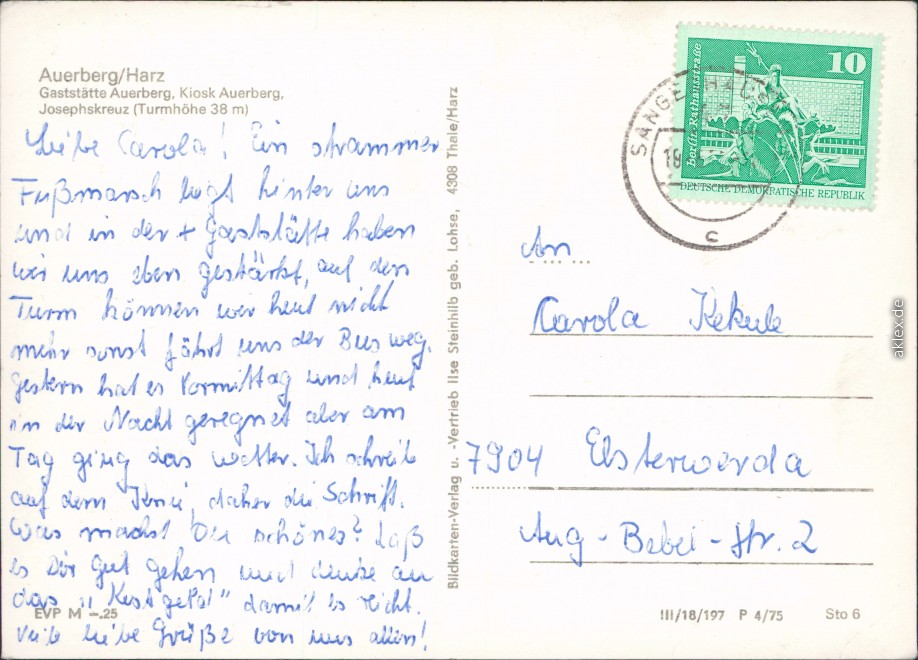 Auerberg/Harz
Gaststätte Auerberg, Kiosk Auerberg,
Josephskreuz (Turmhöhe 38 m)
Liebe Carola! Ein strammer
Fußmarsch liegt hinter uns
und in der + Gaststätte haben
wir uns eben gestärkt, auf den
Turm können wir heut nicht
mehr sonst fährt uns der Bus weg.
Gestern hat es Vormittag und heut
in der Nacht geregnet aber am
Tag ging das Wetter. Ich schreibe
auf dem Knie, daher die Schrift.
Was machst Du schönes? Laß
es Dir gut gehen und denke an
das "Kostgeld" damit es reicht.
Viele liebe Grüße von uns allen!
EVP M –.25
Bildkarten-Verlag u. -Vertrieb Ilse Steinhilb geb. Lohse, 4308 Thale/Harz
10
Berlin, Rathausstraße
DEUTSCHE DEMOKRATISCHE REPUBLIK
C
An
Carola Kekule
7904 Elsterwerda
Aug-Bebel-Str. 2
III/18/197 P 4/75 Sto 6
aklex.de